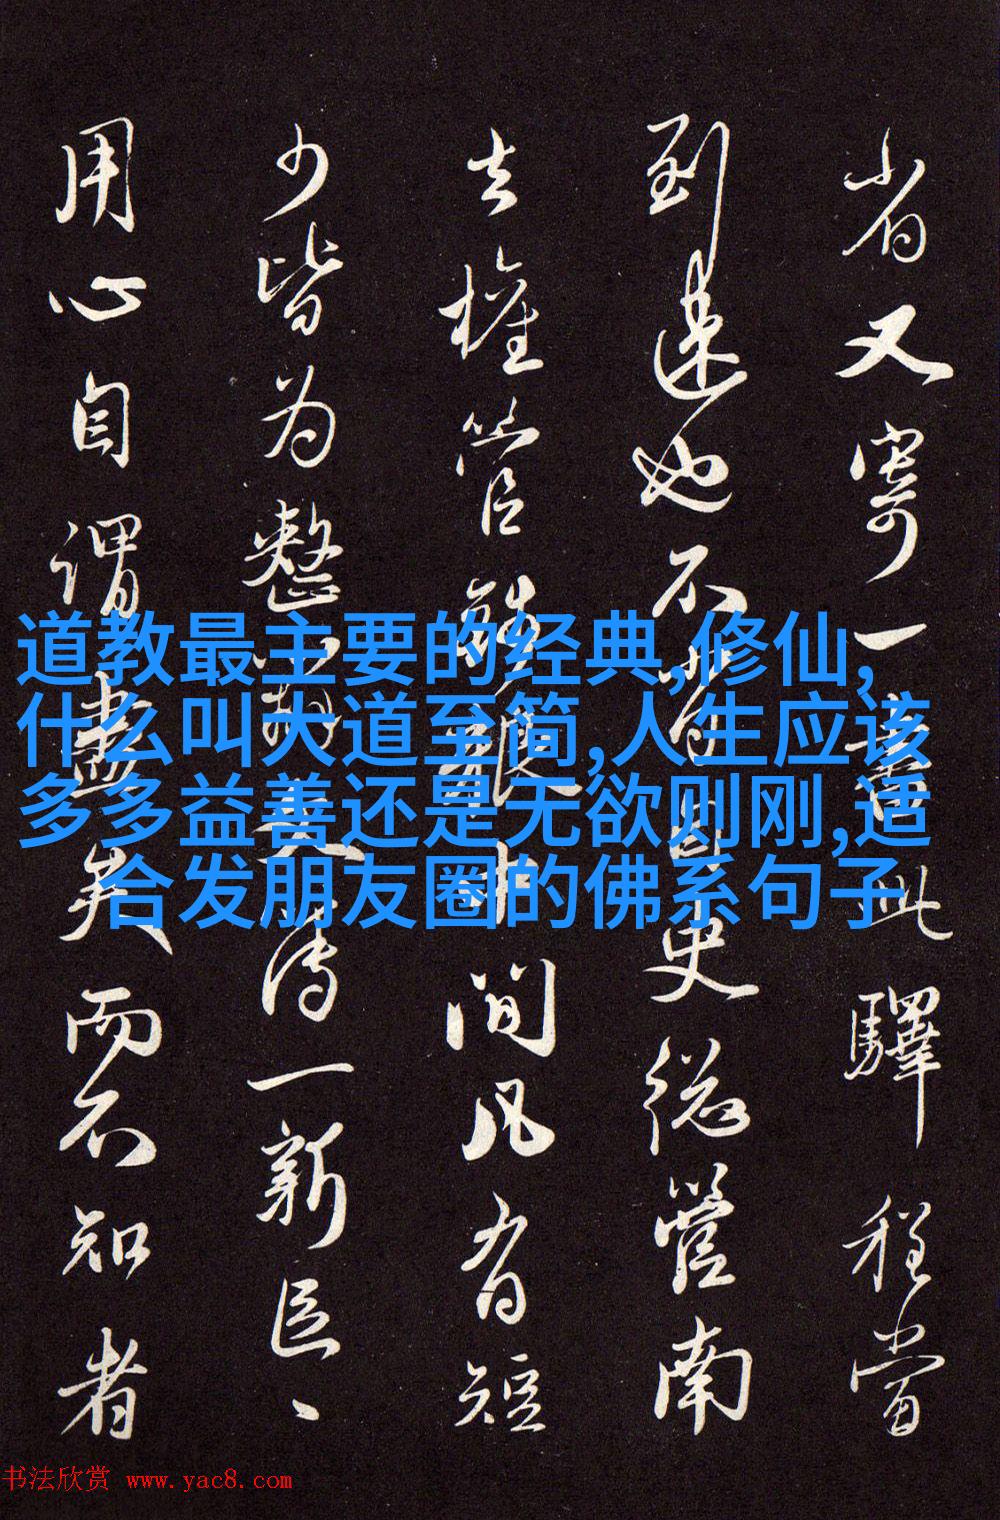 省又寄一書此驛程當
到遠也不
史總管南
去權管
中間凡有短
少皆为整
傳一新匠、
用心自謂盡矣而不知者
道教最主要的经典,修仙,
什么叫大道至简,人生应该
多多益善还是无欲则刚,适
合发朋友圈的佛系句子
书法欣赏 www.yac8.com